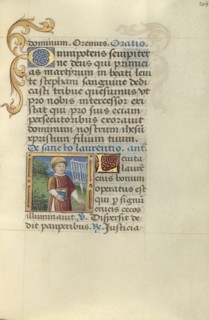 dominum. Oremus. Oratio.
Omnipotens sempiter
ne deus qui primici
as martirum in beati leui
te stephani sanguine dedi
casti tribue quesumus vt
pro nobis intercessor exi
stat qui pro suis eciam
persecutoribus exorauit
dominum nostrum ihesū
xpristum filium tuum.
De sancto laurentio. ant.
Leuita
laurē
cius bonum
operatus est
qui p signū
crucis cecos
illuminauit. V. Dispersit de
dit pauperibus. R. Justicia